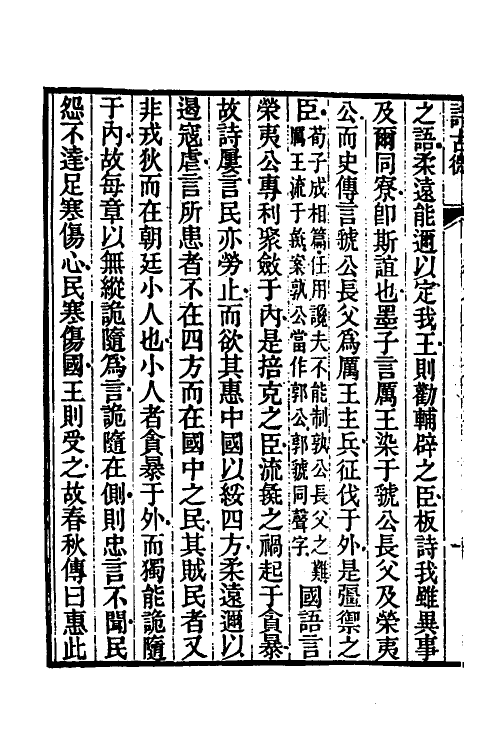 詩古微
之語柔遠能邇以定我王則勸輔辟之臣板詩我雖異事
及爾同寮卽斯誼也墨子言厲王染于虢公長父及榮夷
公而史傳言虢公長父爲厲王主兵征伐于外是彊禦之
臣荀子成相篇任用讒夫不能制孰公長父之難
厲王流于彘案孰公當作郭公郭虢同聲字國語言
榮夷公專利聚斂于內是掊克之臣流彘之禍起于貪暴
故詩屢言民亦勞止而欲其惠中國以綏四方柔遠邇以
遏寇虐言所患者不在四方而在國中之民其賊民者又
非戎狄而在朝廷小人也小人者貪暴于外而獨能詭隨
于內故每章以無縱詭隨爲言詭隨在側則忠言不聞民
怨不達足寒傷心民寒傷國王則受之故春秋傳曰惠此